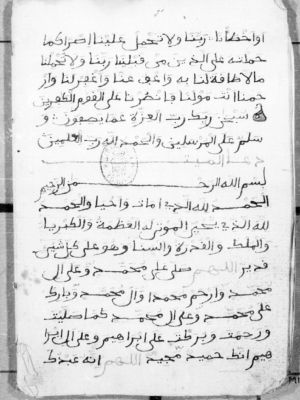 او اخطانا ربنا ولا تحمل علينا اصرا كما
حملته على الذين من قبلنا ربنا ولا تحملنا
ما لا طاقة لنا به واعف عنا واغفر لنا وار
حمنا انت مولنا فانصرنا على القوم الكفرين
سبحن ربك رب العزة عما يصفون و
سلم على المرسلين والحمد لله رب العلمين
دعا الميت
بسم الله الرحمن الرحيم
الحمد لله الذي امات واحيا والحمد
لله الذي يحيي الموتى له العظمة والكبريا
والملك والقدرة والسنا وهو على كل شي
قدير اللهم صل على محمد وعلى ال
محمد وارحم محمدا وال محمد وبارك
على محمد وعلى ال محمد كما صليت
ورحمت وبركت على ابراهيم وعلى ال ابرا
هيم انك حميد مجيد اللهم انه عبدك